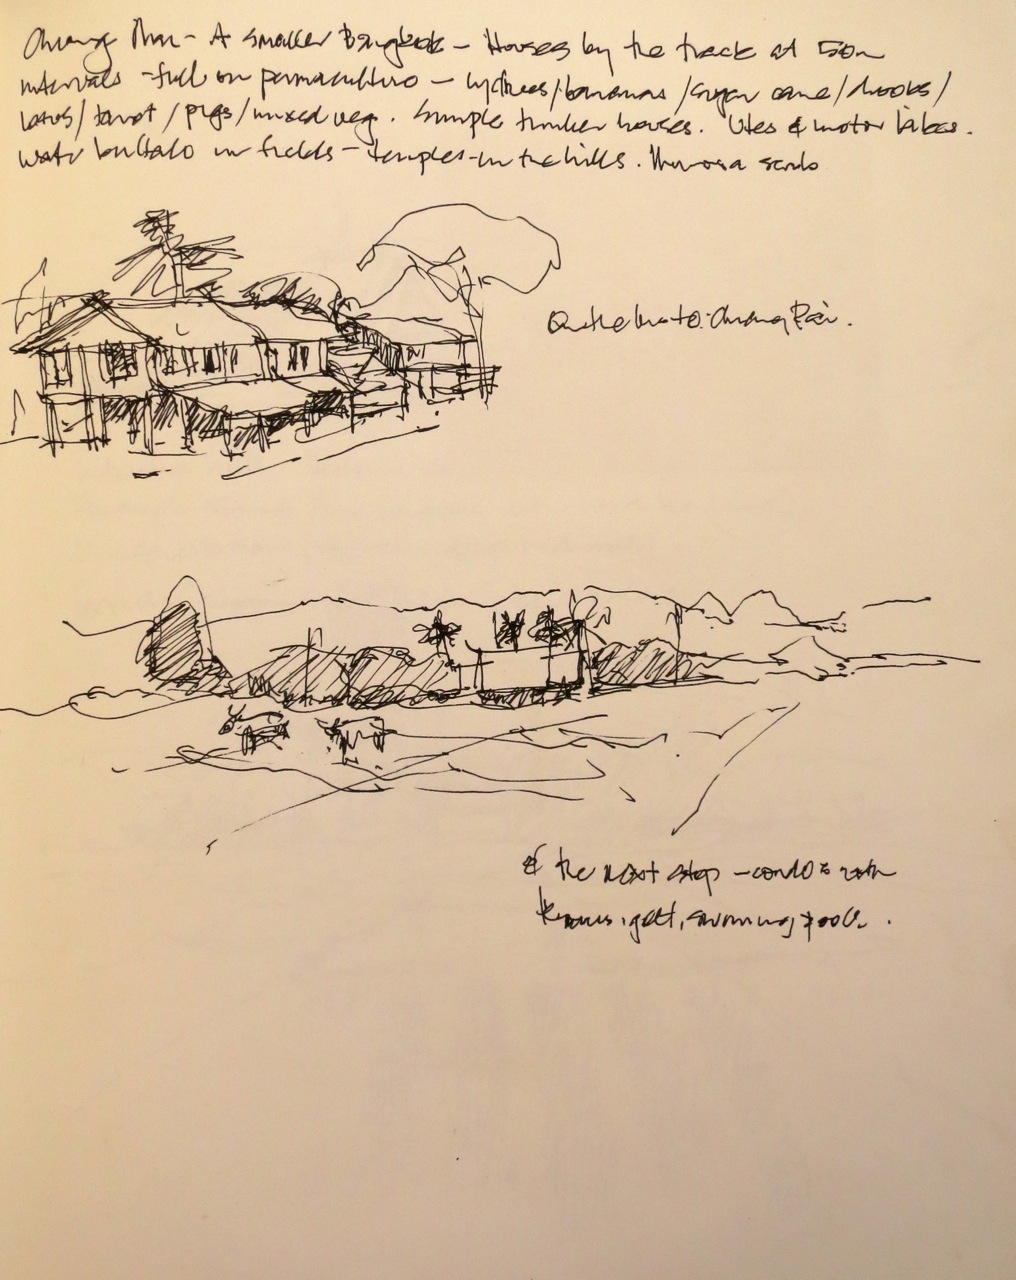 Chiang Mai - A smaller Bangkok - Houses by the track at 50m
intervals - full on permaculture - lychees/bananas/sugar cane/chooks/
lotus/taro/pigs/mixed veg. Simple timber houses. Utes & motor bikes.
Water buffalo in fields - temples - in the hills.
On the bus to Chiang Rai.
& the next stop - condos with
tennis, golf, swimming pools.